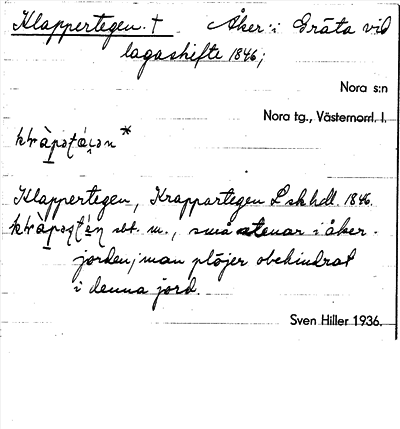 Klappertegen. † Åker i Gräta vid
lagaskifte 1846;
Nora s:n
Nora tg., Västernorrl. l.
Klappertegen, Krappartegen L sk hdl. 1846.
sbt. m., små stenar i åker-
jorden; man plöjer obehindrat
i denna jord.
Sven Hiller 1936.